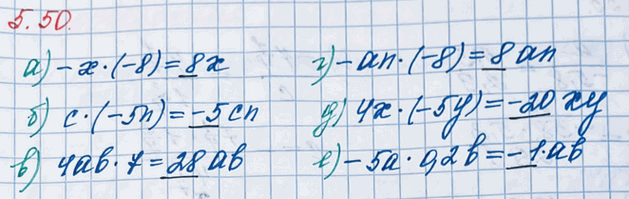 5.50.
а) -x·(-8)=8x
б) c·(-5n)=-5cn
в) 4ab·7=28ab
г) -an·(-8)=8an
д) 4x·(-5y)=-20xy
е) -5a·0,2b=-1·ab